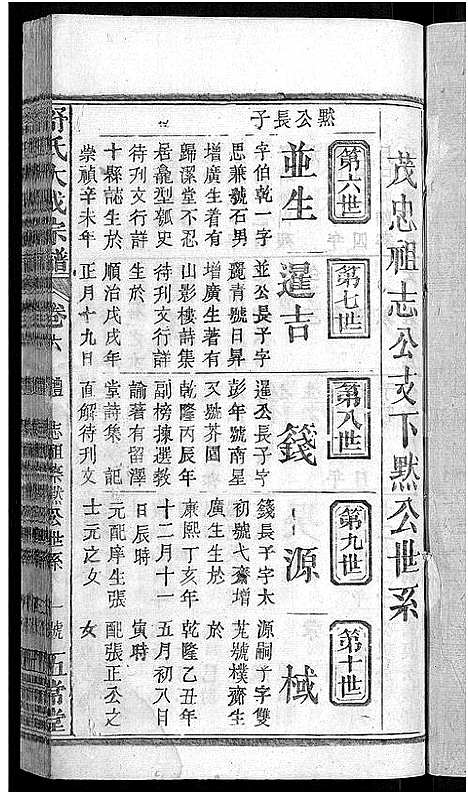 茂忠祖志公支下默公世系
第六世
默公長子
並生
字伯乾一字
思兼號石男
增廣生着有
歸潔堂不忍
居龕型瓠史
待刋文行詳
十縣誌生於
崇禎辛未年
第七世
暹吉
並公長子字
麗青號日昇
增廣生著有
山影樓詩集
待刋文行詳
生於
順治戊戌年
正月十九日
第八世
籛
暹公長子字
彭年號南星
又號芥園
乾隆丙辰年
副榜揀選教
諭著有留澤
堂詩集 記
直解待刋文
第九世
源
籛長子字太
初號弋齋增
廣生生於
康熙丁亥年
十二月十一
日辰時
元配庠生張
士元之女
第十世
棫
源嗣子字雙
芄號樸齋生
於
乾隆乙丑年
五月初八日
寅時
配張正公之
女
舒氏大成宗譜
卷六
志祖崇默公世系
一號
五常堂